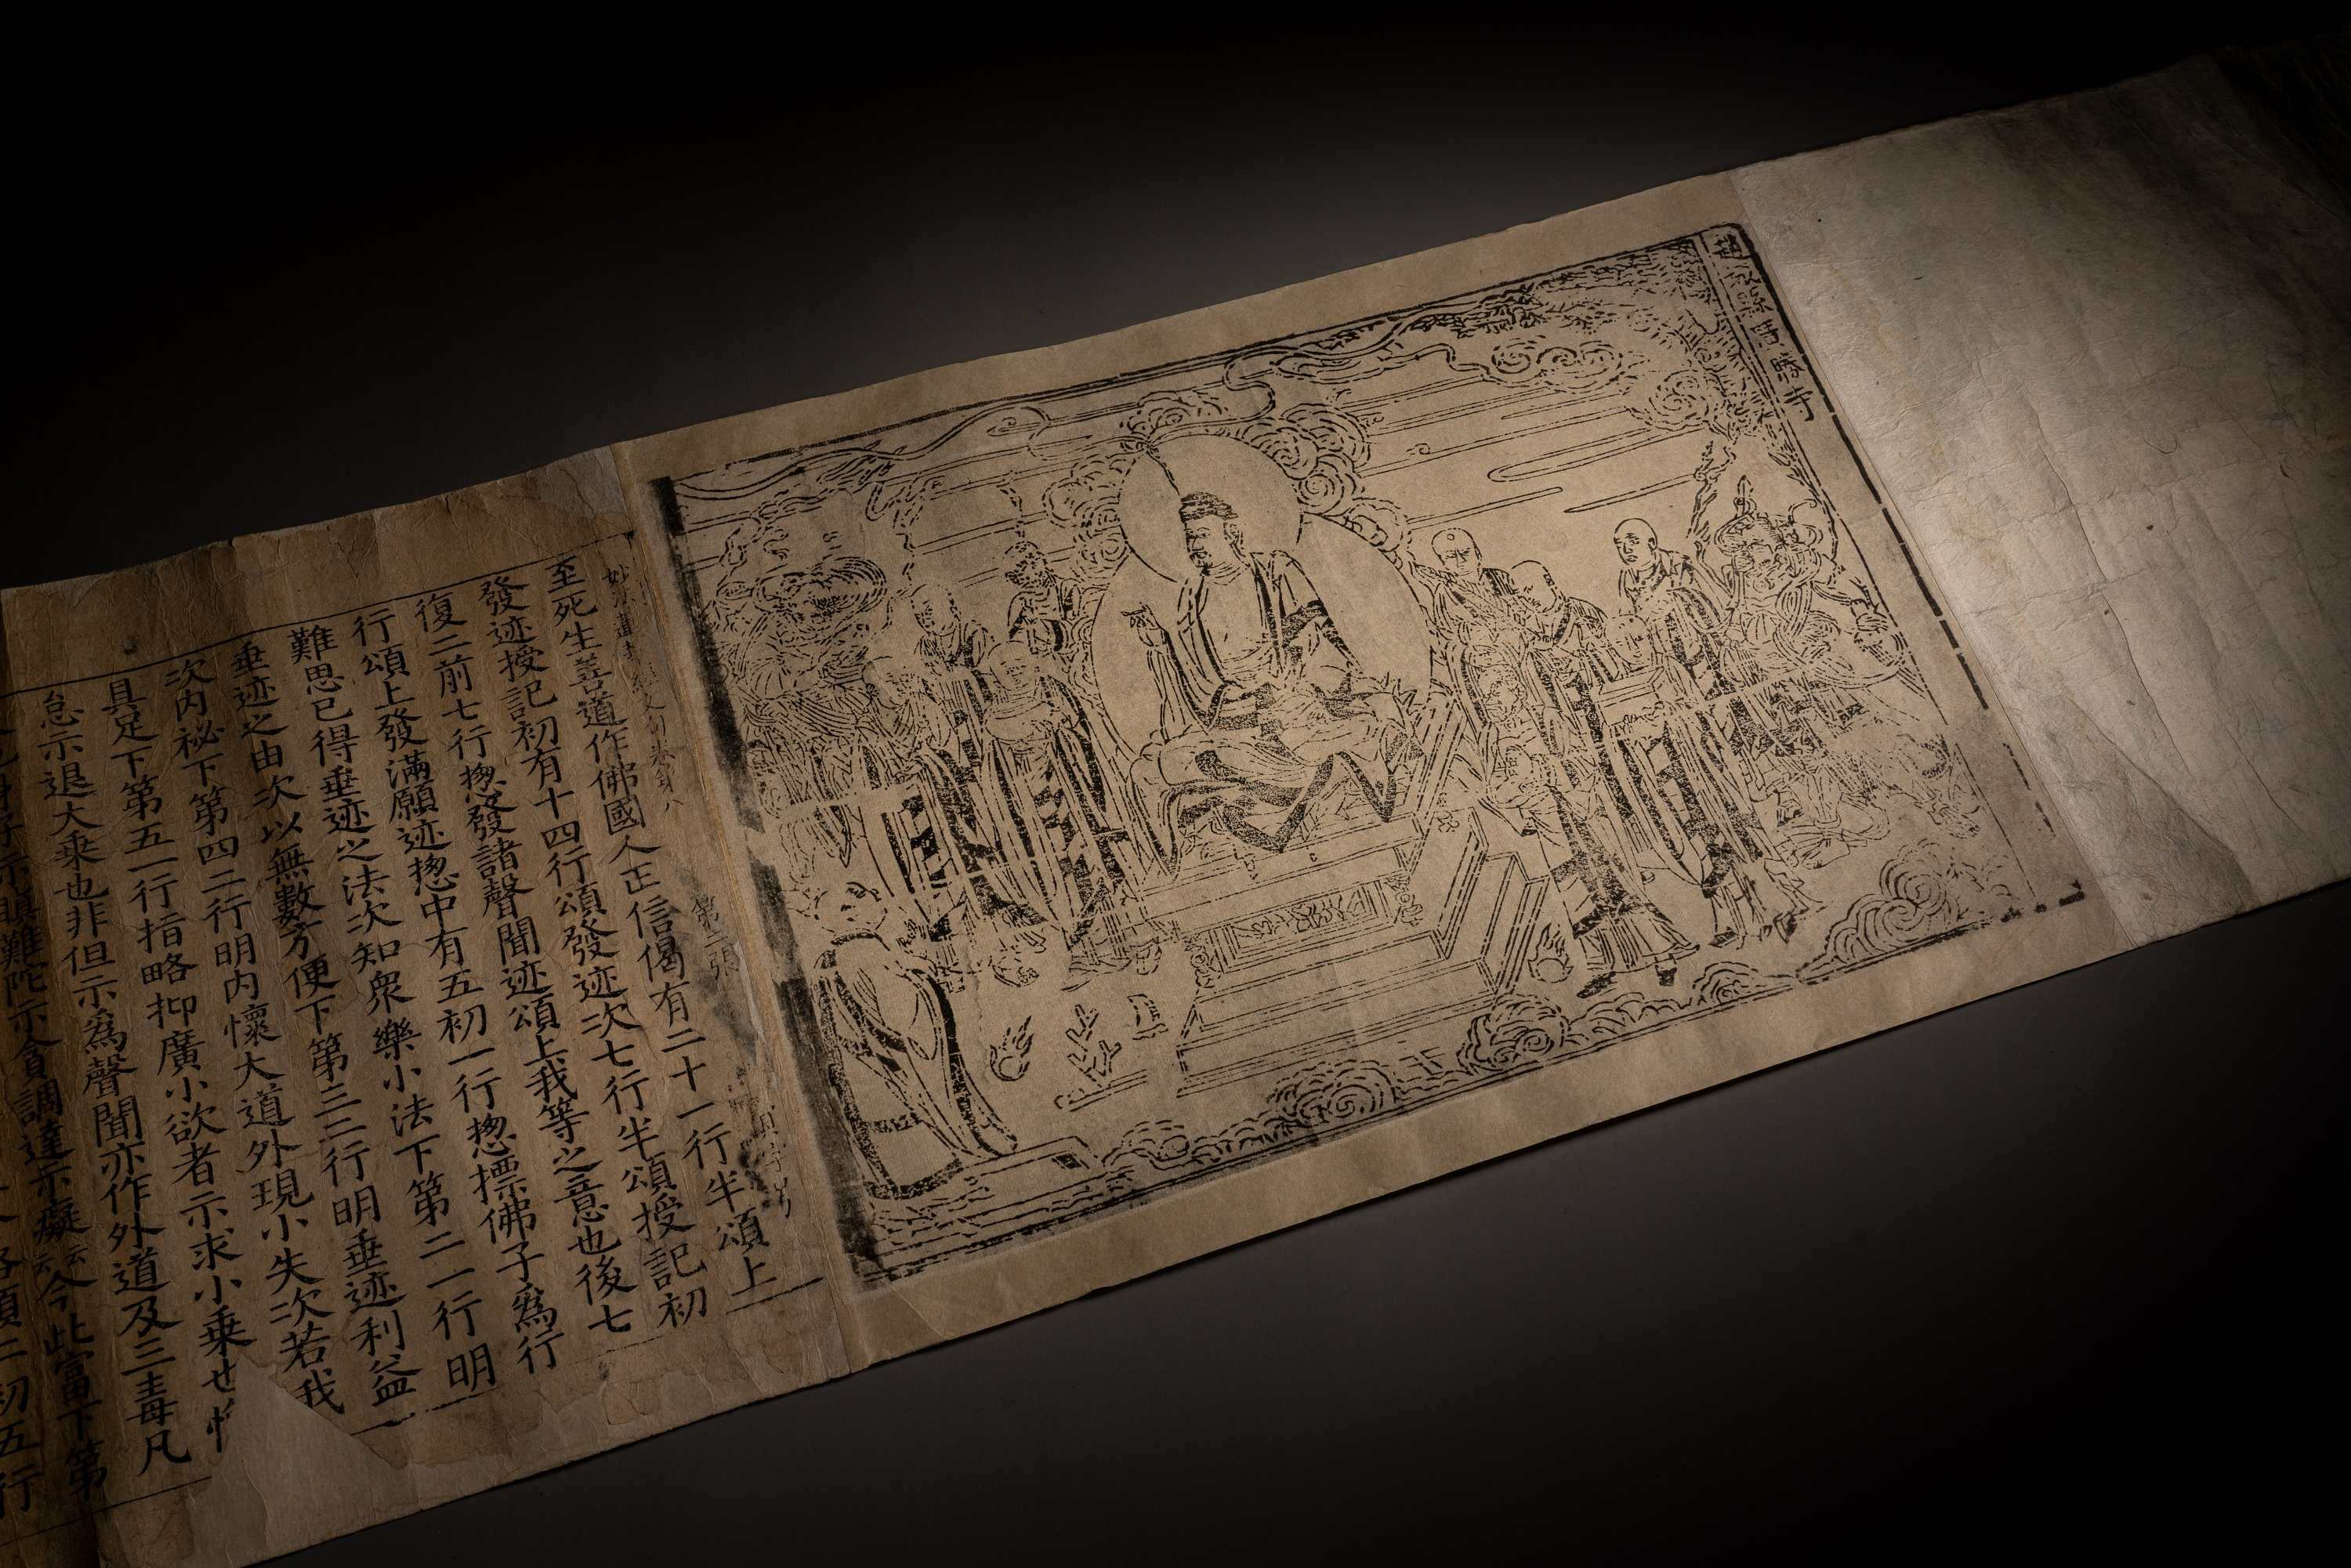 趙城縣廣勝寺
妙法蓮華經文句卷第八 第二張 字号
至死生善道作佛國人正信偈有二十一行半頌上
發迹授記初有十四行頌發迹次七行半頌授記初
復二前七行揔發諸聲聞迹頌上我等之意也後七
行頌上發滿願迹揔中有五初一行揔摽佛子爲行
難思已得垂迹之法次知衆樂小法下第二一行明
垂迹之由次以無數方便下第三三行明垂迹利益
次内祕下第四二行明内懷大道外現小失次若我
具足下第五一行指略抑廣小欲者示求小乘也
怠示退大乘也非但示爲聲聞亦作外道及三毒凡
夫也身子示瞋難陀示貪調達示癡云云今此富下第
各頌二初五行